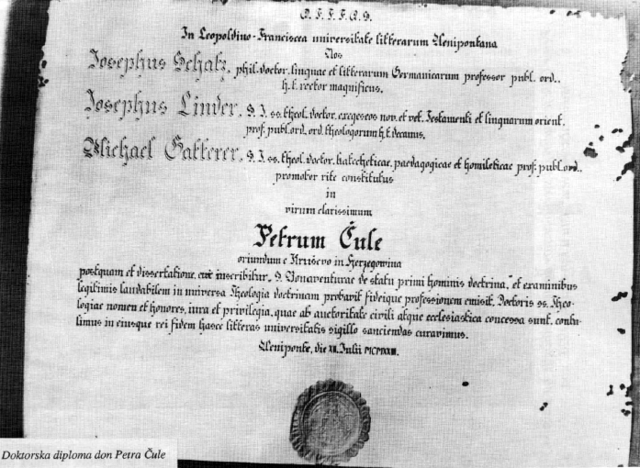 Q. F. F. F. Q. S.
In Leopoldino-Franciscea universitate litterarum Aenipontana
Nos
Josephus Schatz, phil. doctor, linguae et litterarum Germanicarum professor publ. ord.,
h. t. rector magnificus.
Josephus Linder, S. J. ss. theol. doctor, exegeseos nov. et vet. Testamenti et linguarum orient.
prof. publ. ord., ord. theologorum h. t. decanus,
Michael Gatterer, S. J. ss. theol. doctor, katecheticae, paedagogicae et homileticae prof. publ. ord.,
promotor rite constitutus
in
virum clarissimum
Petrum Čule
oriundum e Kruševo in Herzegowina
postquam et dissertatione, cui inscribitur „S. Bonaventurae de statu primi hominis doctrina“, et examinibus
legitimis laudabilem in universa theologia doctrinam probavit fideique professionem emisit, Doctoris ss. Theo-
logiae nomen et honores, iura et privilegia, quae ab auctoritate civili atque ecclesiastica concessa sunt, contu-
limus in eiusque rei fidem hasce litteras universitatis sigillo sanciendas curavimus.
Aeniponte, die Julii
Doktorska diploma don Petra Čule